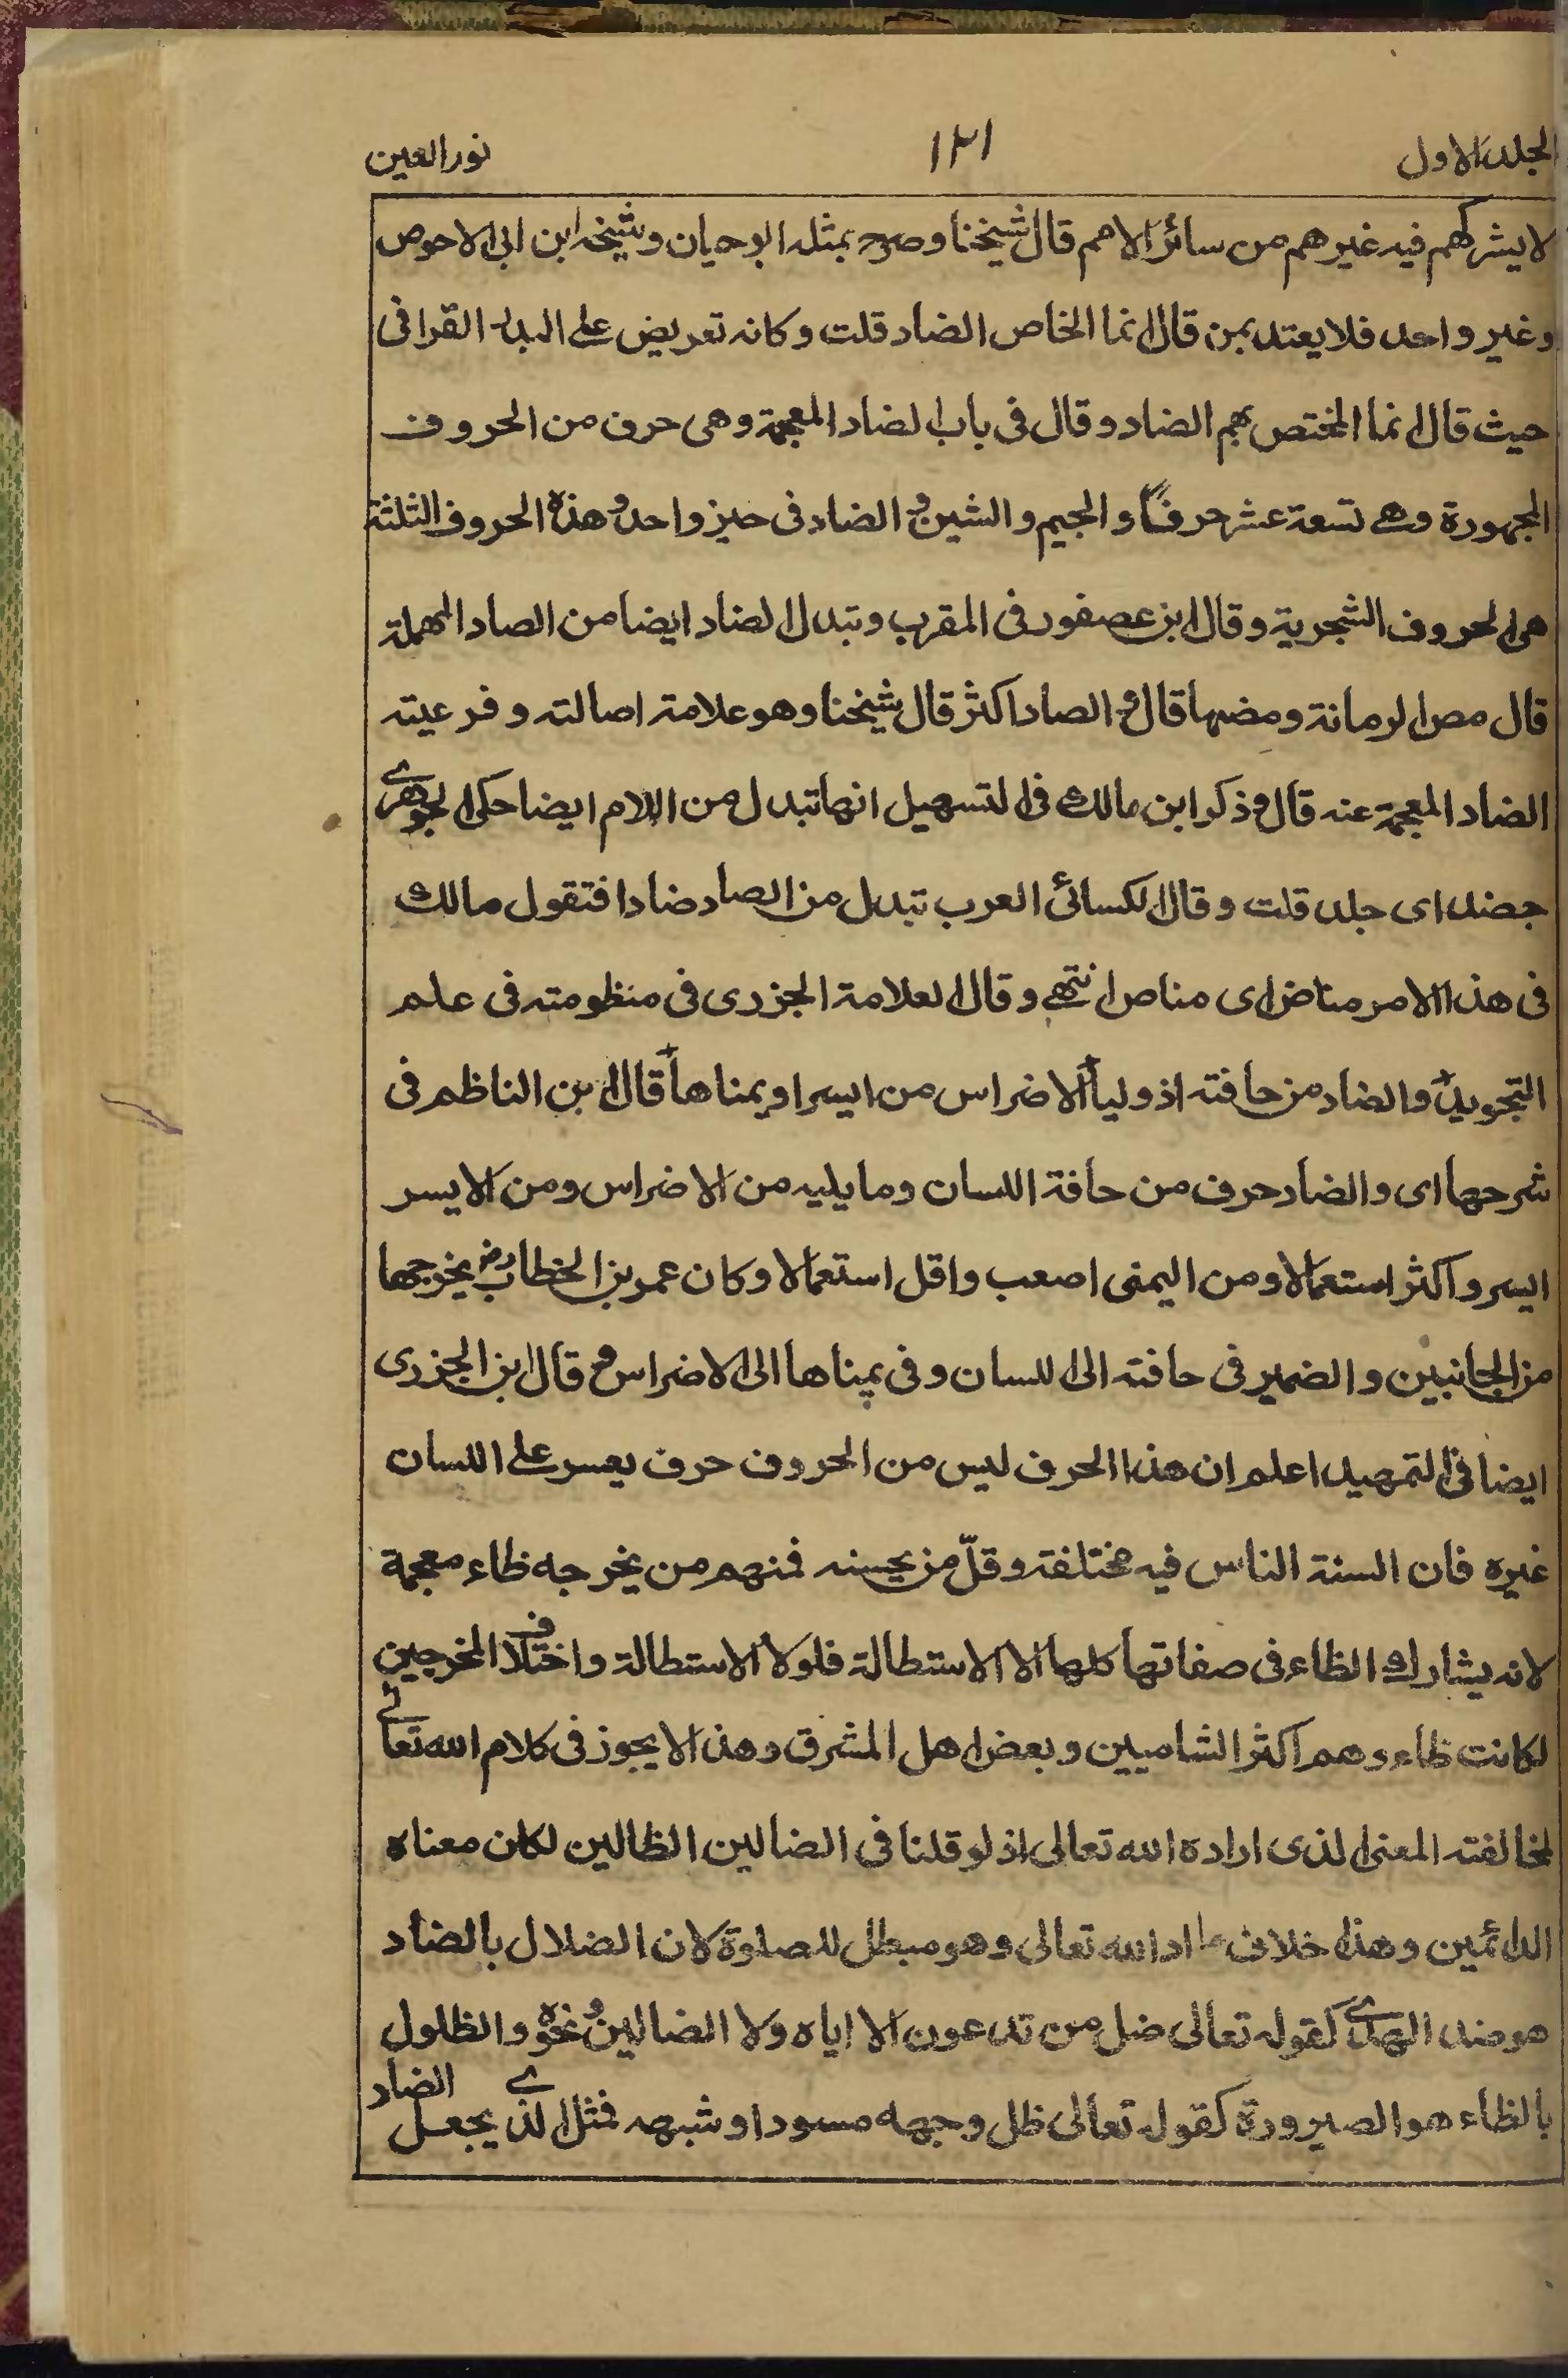 الجلد الاول
١٣١
نور العين
لا يشركهم فيه غيرهم من سائر الامم قال شيخنا وصرح بمثله ابو حيان وشيخه ابن ابى الاحوص
وغير واحد فلا يعتد بمن قال انما الخاص الضاد قلت وكانه تعريض على البدر القرافى
حيث قال انما المختص بهم الضاد وقال فى باب الضاد المعجمة وهى حرف من الحروف
المجهورة وهے تسعة عشر حرفًا والجيم والشين و الضاد فى حيز واحد وهذه الحروف الثلثة
هى الحروف الشجرية وقال ابن عصفور فى المقرب وتبدل الضاد ايضا من الصاد المهملة
قال مص الرمانة ومضها قال و الصاد اكثر قال شيخنا وهو علامة اصالته وفرعيته
الضاد المعجمة عنه قال وذكر ابن مالك فى التسهيل انها تبدل من اللام ايضا حكى الجوهرے
جضد اى جلد قلت وقال الكسائى العرب تبدل من الصاد ضادا فتقول مالك
فى هذا الامر مناض اى مناص انتهے وقال العلامة الجزرى فى منظومته فى علم
التجويد والضاد من حافته اذ وليا الاضراس من ايسر او يمناها قال ابن الناظم فى
شرحها اى والضاد حرف من حافة اللسان وما يليه من الاضراس ومن الايسر
ايسر واكثر استعمالا ومن اليمنى اصعب واقل استعمالا وكان عمر بن الخطاب رض يخرجها
من الجانبين والضمير فى حافته الى اللسان وفى يمناها الى الاضراس ح قال ابن الجزرى
ايضا فى التمهيد اعلم ان هذا الحرف ليس من الحروف حرف يعسر على اللسان
غيره فان السنة الناس فيه مختلفة وقلّ من يحسنه فمنهم من يخرجه ظاء معجمة
لانه يشارك الظاء فى صفاتها كلها الا الاستطالة فلولا الاستطالة واختلاف المخرجين
لكانت ظاء وهم اكثر الشاميين وبعض اهل المشرق وهذا لا يجوز فى كلام الله تعالے
لمخالفته المعنى الذى اراده الله تعالى اذ لو قلنا فى الضالين الظالين لكان معناه
الدائمين وهذا خلاف ما اراد الله تعالى وهو مبطل للصلوة لان الضلال بالضاد
هو ضد الهدے كقوله تعالى ضل من تدعون الا اياه ولا الضالين ونحوه والظلول
بالظاء هو الصيرورة كقوله تعالى ظل وجهه مسودا وشبهه فمثل الذے يجعل الضاد